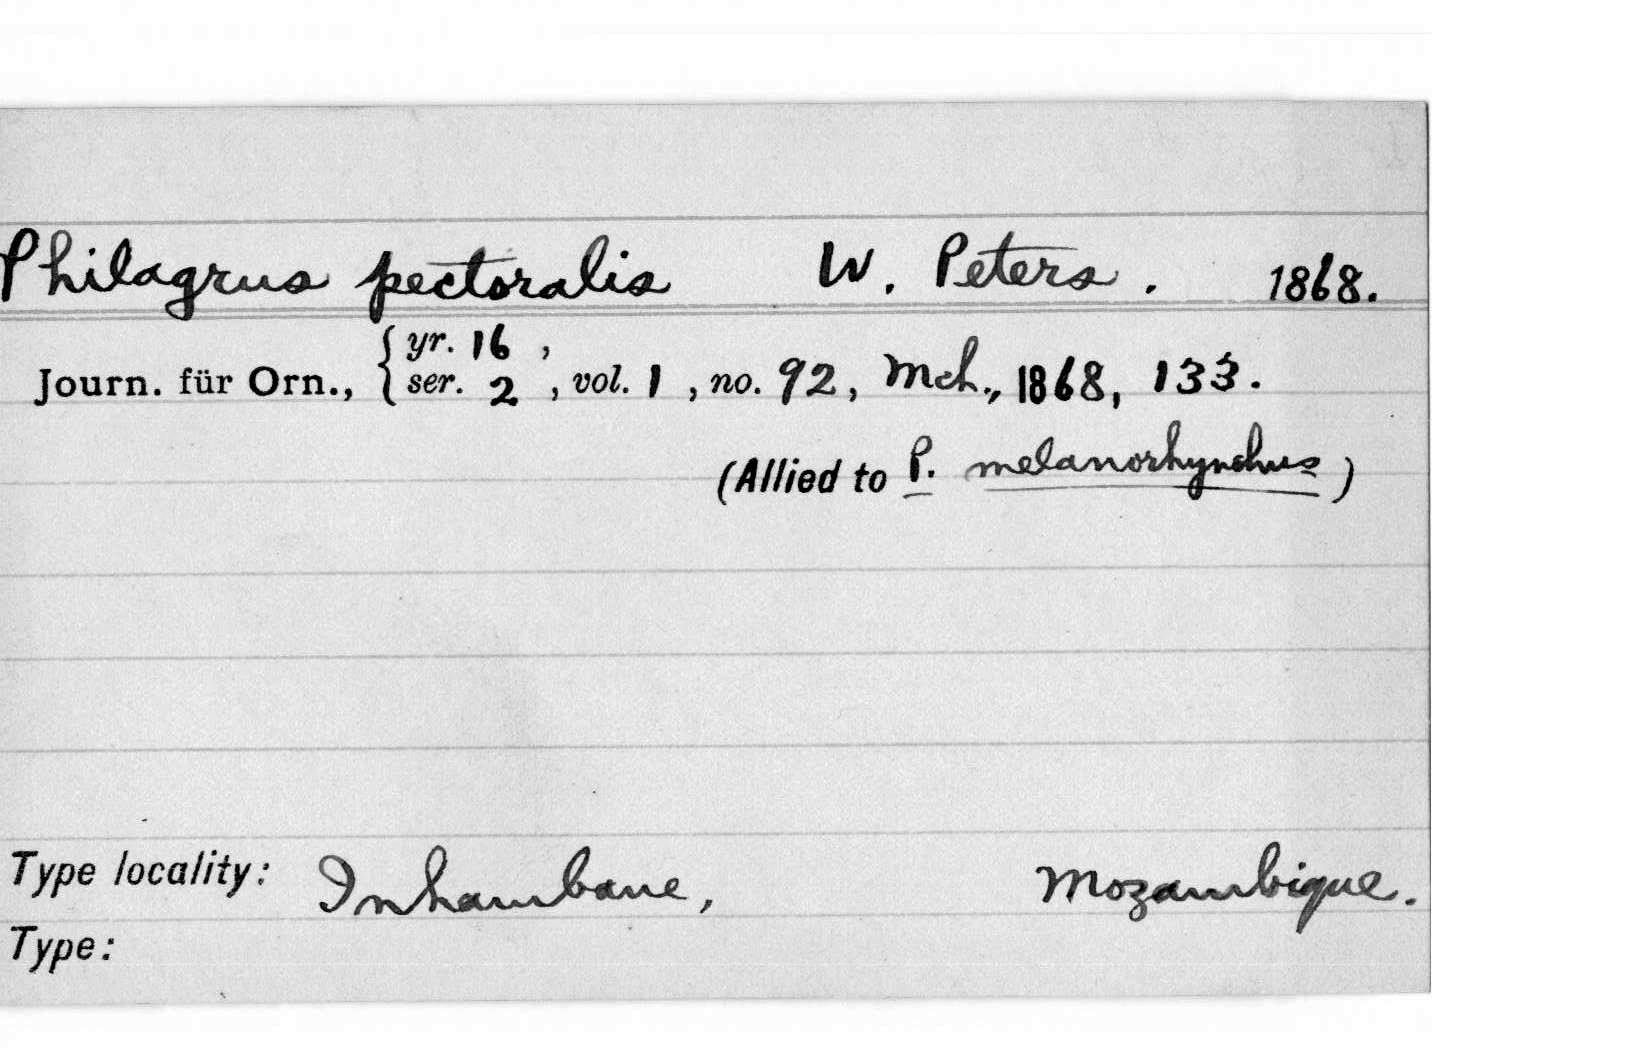 Philagrus pectoralis W. Peters. 1868.
Journ. für Orn., { yr. 16,
ser. 2, vol. 1, no. 92, Mch., 1868, 133.
(Allied to P. melanorhynchus)
Type locality: Inhambane, Mozambique.
Type: